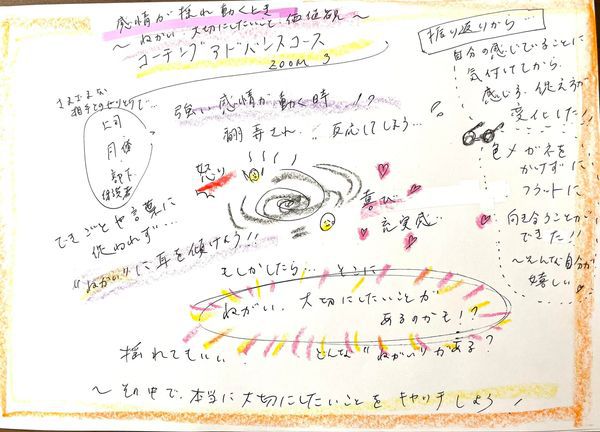 感情が揺れ動くとき
〜ねがい・大切にしたいこと・価値観〜
コーチングアドバンスコース
ZOOM 3
さまざまな
相手とのやりとりで…
上司
同僚
部下
保護者
強い感情が動く時…!?
翻弄され…反応してしまう…
怒り
喜び
充実感…
できごとや言葉に
とらわれず…
"ねがい"に耳を傾けよう!!
もしかしたら…そこに
ねがい、大切にしたいことが
あるのかも!?
揺れてもいい、
どんな"ねがい"がある?
〜その中で、本当に大切にしたいことをキャッチしよう!
振り返りから…
自分の感じていることに
気付けてから
感じる、捉え方が
変化した!!
色メガネを
かけずに
フラットに
向き合うことが
できた!!
〜そんな自分が
嬉しい